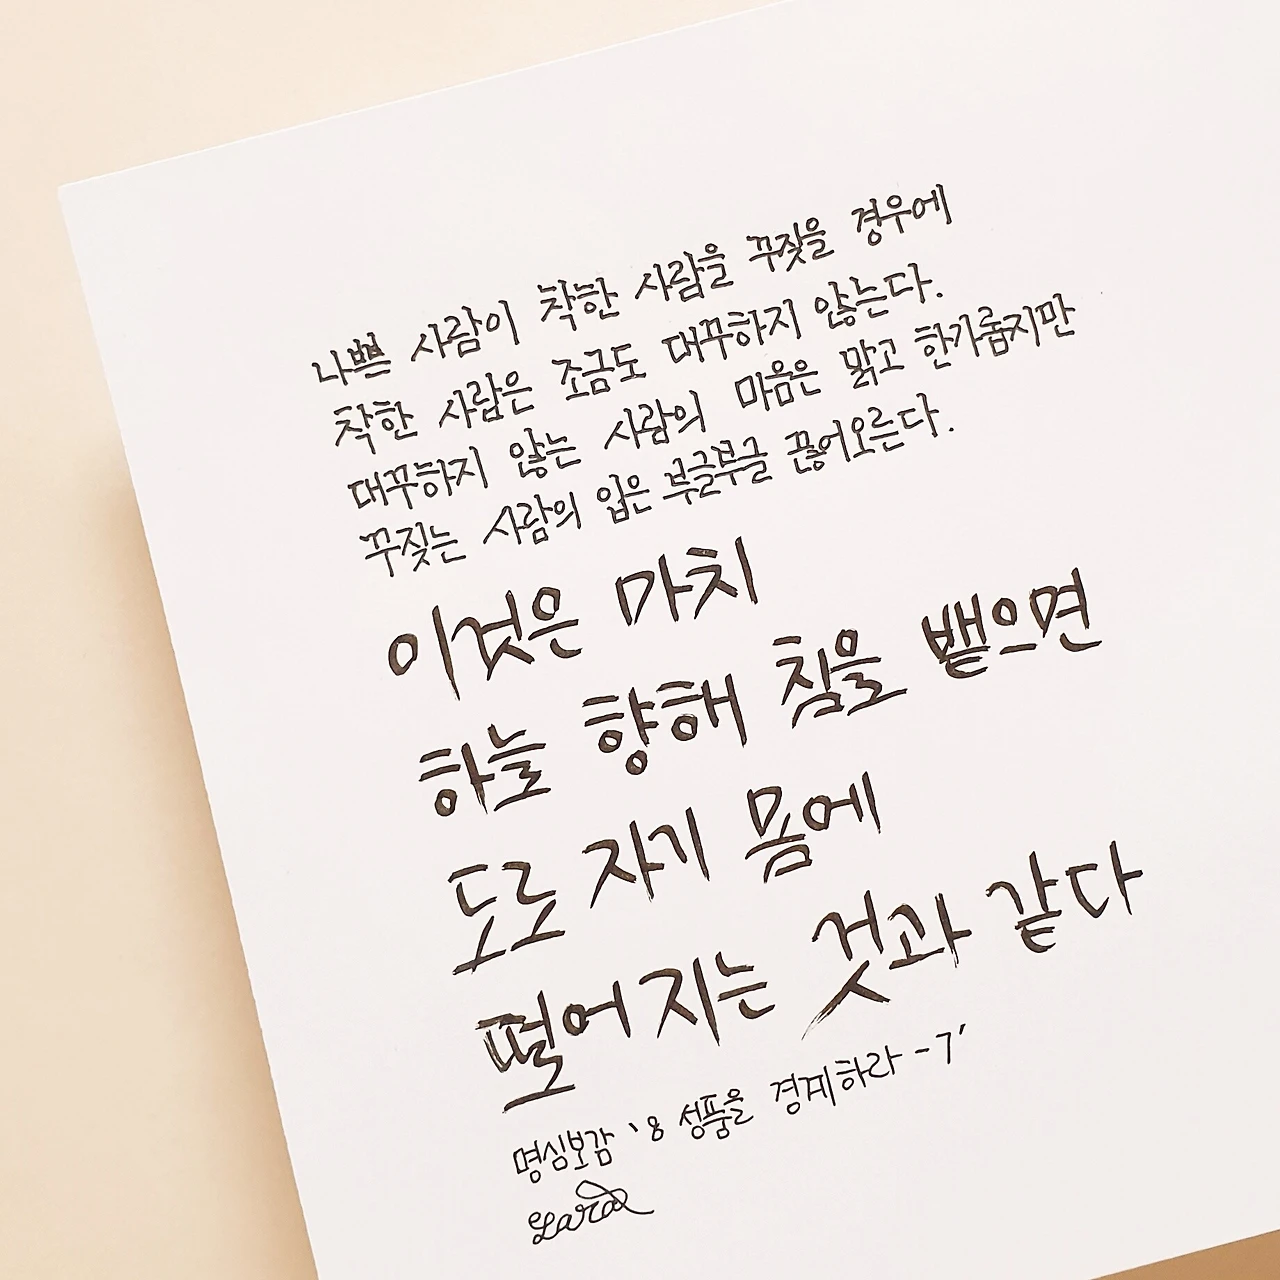 나쁜 사람이 착한 사람을 꾸짖을 경우에
착한 사람은 조금도 대꾸하지 않는다.
대꾸하지 않는 사람의 마음은 맑고 한가롭지만
꾸짖는 사람의 입은 부글부글 끓어오른다.
이것은 마치
하늘 향해 침을 뱉으면
도로 자기 몸에
떨어지는 것과 같다
명심보감 '8 성품을 경계하라-7'